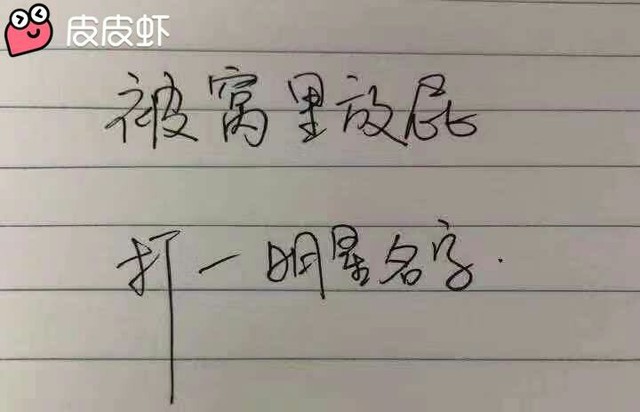 皮皮虾
被窝里放屁
打一明星名字.